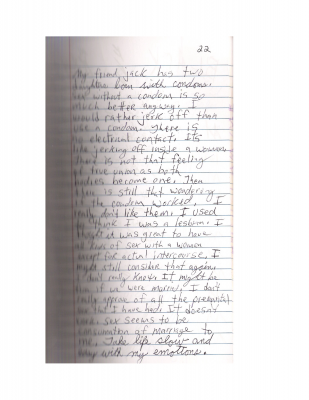 22
My friend, jack has two
born with condoms.
sex without a condom is so
much better anyway. I
would rather jerk off than
use a condom. There is
no electrical contact. Its
like jerking off inside a woman.
There is not that feeling
of true union as both
bodies become one. Then
there is still that wondering
if the condom worked. I
really don't like them. I used
to think I was a lesbian. I
it was great to have
all kinds of sex with a woman
except for actual intercourse. I
might still consider that again.
I don't really know. It might be
if we were married. I don't
really approve of all the premarital
sex that I have had. It doesn't
sex seems to be
consumation of marriage to
me. Take life slow and
with my emotions.